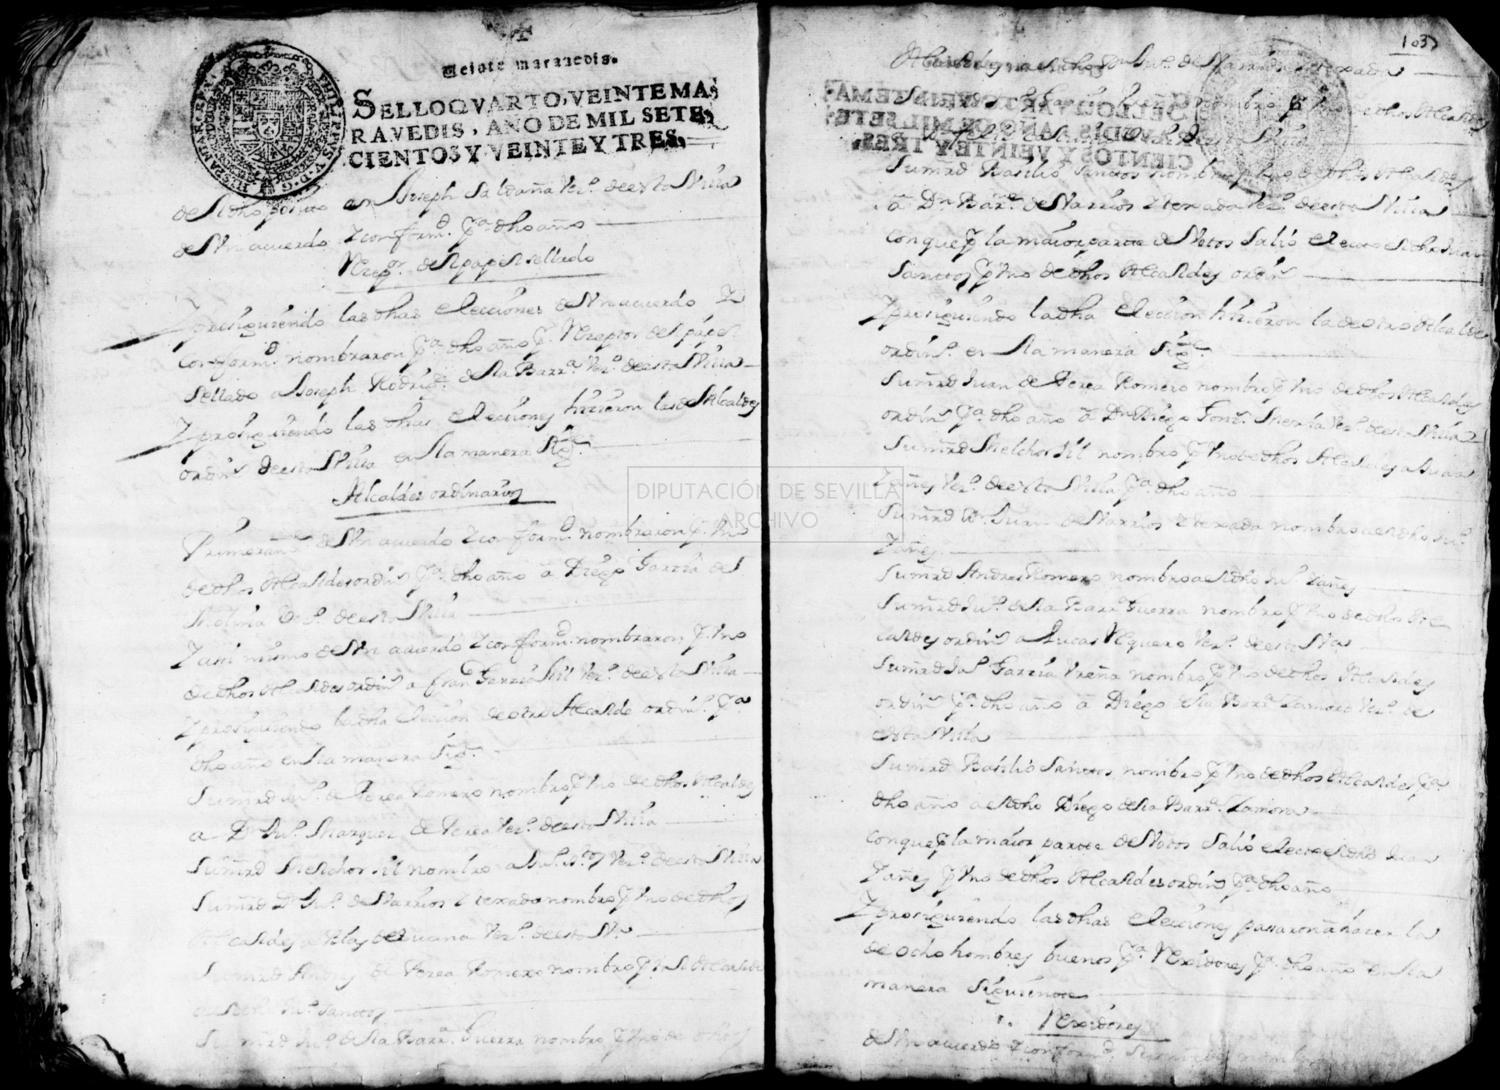 Veinte maravedis.
SELLO QVARTO, VEINTE MA
RAVEDIS, AÑO DE MIL SETE
CIENTOS Y VEINTE Y TRES.
Joseph Saldaña Vº. de esta Villa
de Un acuerdo y conformd. pª. dho año
de el papel sellado
Y prosiguiendo las dhas elecciones de Un acuerdo y
conformd. nombraron pª. dho año pr. Rezeptor del papel
sellado a Joseph Rodrigz. de la Barrª. Vº. de esta Villa
Y prosiguiendo las dhas elecciones hizieron las de Alcaldes
ordins. de esta Villa en la manera sigte.
Alcaldes ordinarios
Primeramte. de Un acuerdo y conformd. nombraron pr. Uno
de dhos Alcaldes ordins. pª. dho año â Diego Garcia de
Molina Vº. de esta Villa
Y assi mismo de Un acuerdo y conformd. nombraron pr. Uno
de dhos Alcaldes ordins. a Franco. Garcia Gil Vº. de esta Villa
Y prosiguiendo la dha Eleccion de otro Alcalde ordino. pª.
dho año en la manera sigte.
Su mrd Juº. de Perea Romero nombro pr. Uno de dhos Alcaldes
a Dn Juº. Marquez de Perea Vº. de esta Villa
Su mrd Melchor Gil nombro a Vº. de esta Villa
Su mrd Dn Juº. de Barrios y texada nombro pr. Uno de dhos
Alcaldes a Vº. de esta Vª.
Su mrd Andres de Perea Romero nombro pr. tal Alcalde
Juº. Sanctos
Su mrd Juº. de la Barrª. Guerra nombro pr. Uno de dhos
103
Alcaldes a dho Dn Juº. de Barrios y texada
nombro pr. Uno de dhos Alcaldes
Su mrd Basilio Sanctos nombro pr. Uno de dhos Alcaldes
â Dn Barme. de Barrios y texada Vº. de esta Villa
Con que pr. la maior parte de Votos salio electo el dho Juan
Sanctos pr. Uno de dhos Alcaldes ordins.
Y prosiguiendo la dha Eleccion hizieron la de otro Alcalde
ordino. en la manera sigte.
Su mrd Juan de Perea Romero nombro pr. Uno de dhos Alcaldes
ordins. pª. dho año â Dn Diego Vº. de esta Villa
Su mrd Melchor Gil nombro pr. Uno de dhos Alcaldes a Juan
Yañez Vº. de esta Villa pª. dho año
Su mrd Dn Juan de Barrios y texada nombro a el dho Juº.
Yañez
Su mrd Andres Romero nombro a el dho Juº. Yañez
Su mrd Juº. de la Barrª. Guerra nombro pr. Uno de dhos Al
caldes ordins. a Lucas Vº. de esta Vª.
Su mrd Juº. Garcia Ureña nombro pr. Uno de dhos Alcaldes
ordins. pª. dho año â Diego de la Barrª. Zamora Vº. de
esta Villa
Su mrd Basilio Sanctos nombro pr. Uno de dhos Alcaldes pª.
dho año a el dho Diego de la Barrª. Zamora
Con que pr. la maior parte de Votos salio electo el dho Juan
Yañez pr. Uno de dhos Alcaldes ordins. pª. dho año
Y prosiguiendo las dhas Elecciones passaron â hacer la
de ocho hombres buenos pª. Rexidores pª. dho año en la
manera siguiente
Rexidores
de Un acuerdo y conformd.
DIPUTACIÓN DE SEVILLA
ARCHIVO